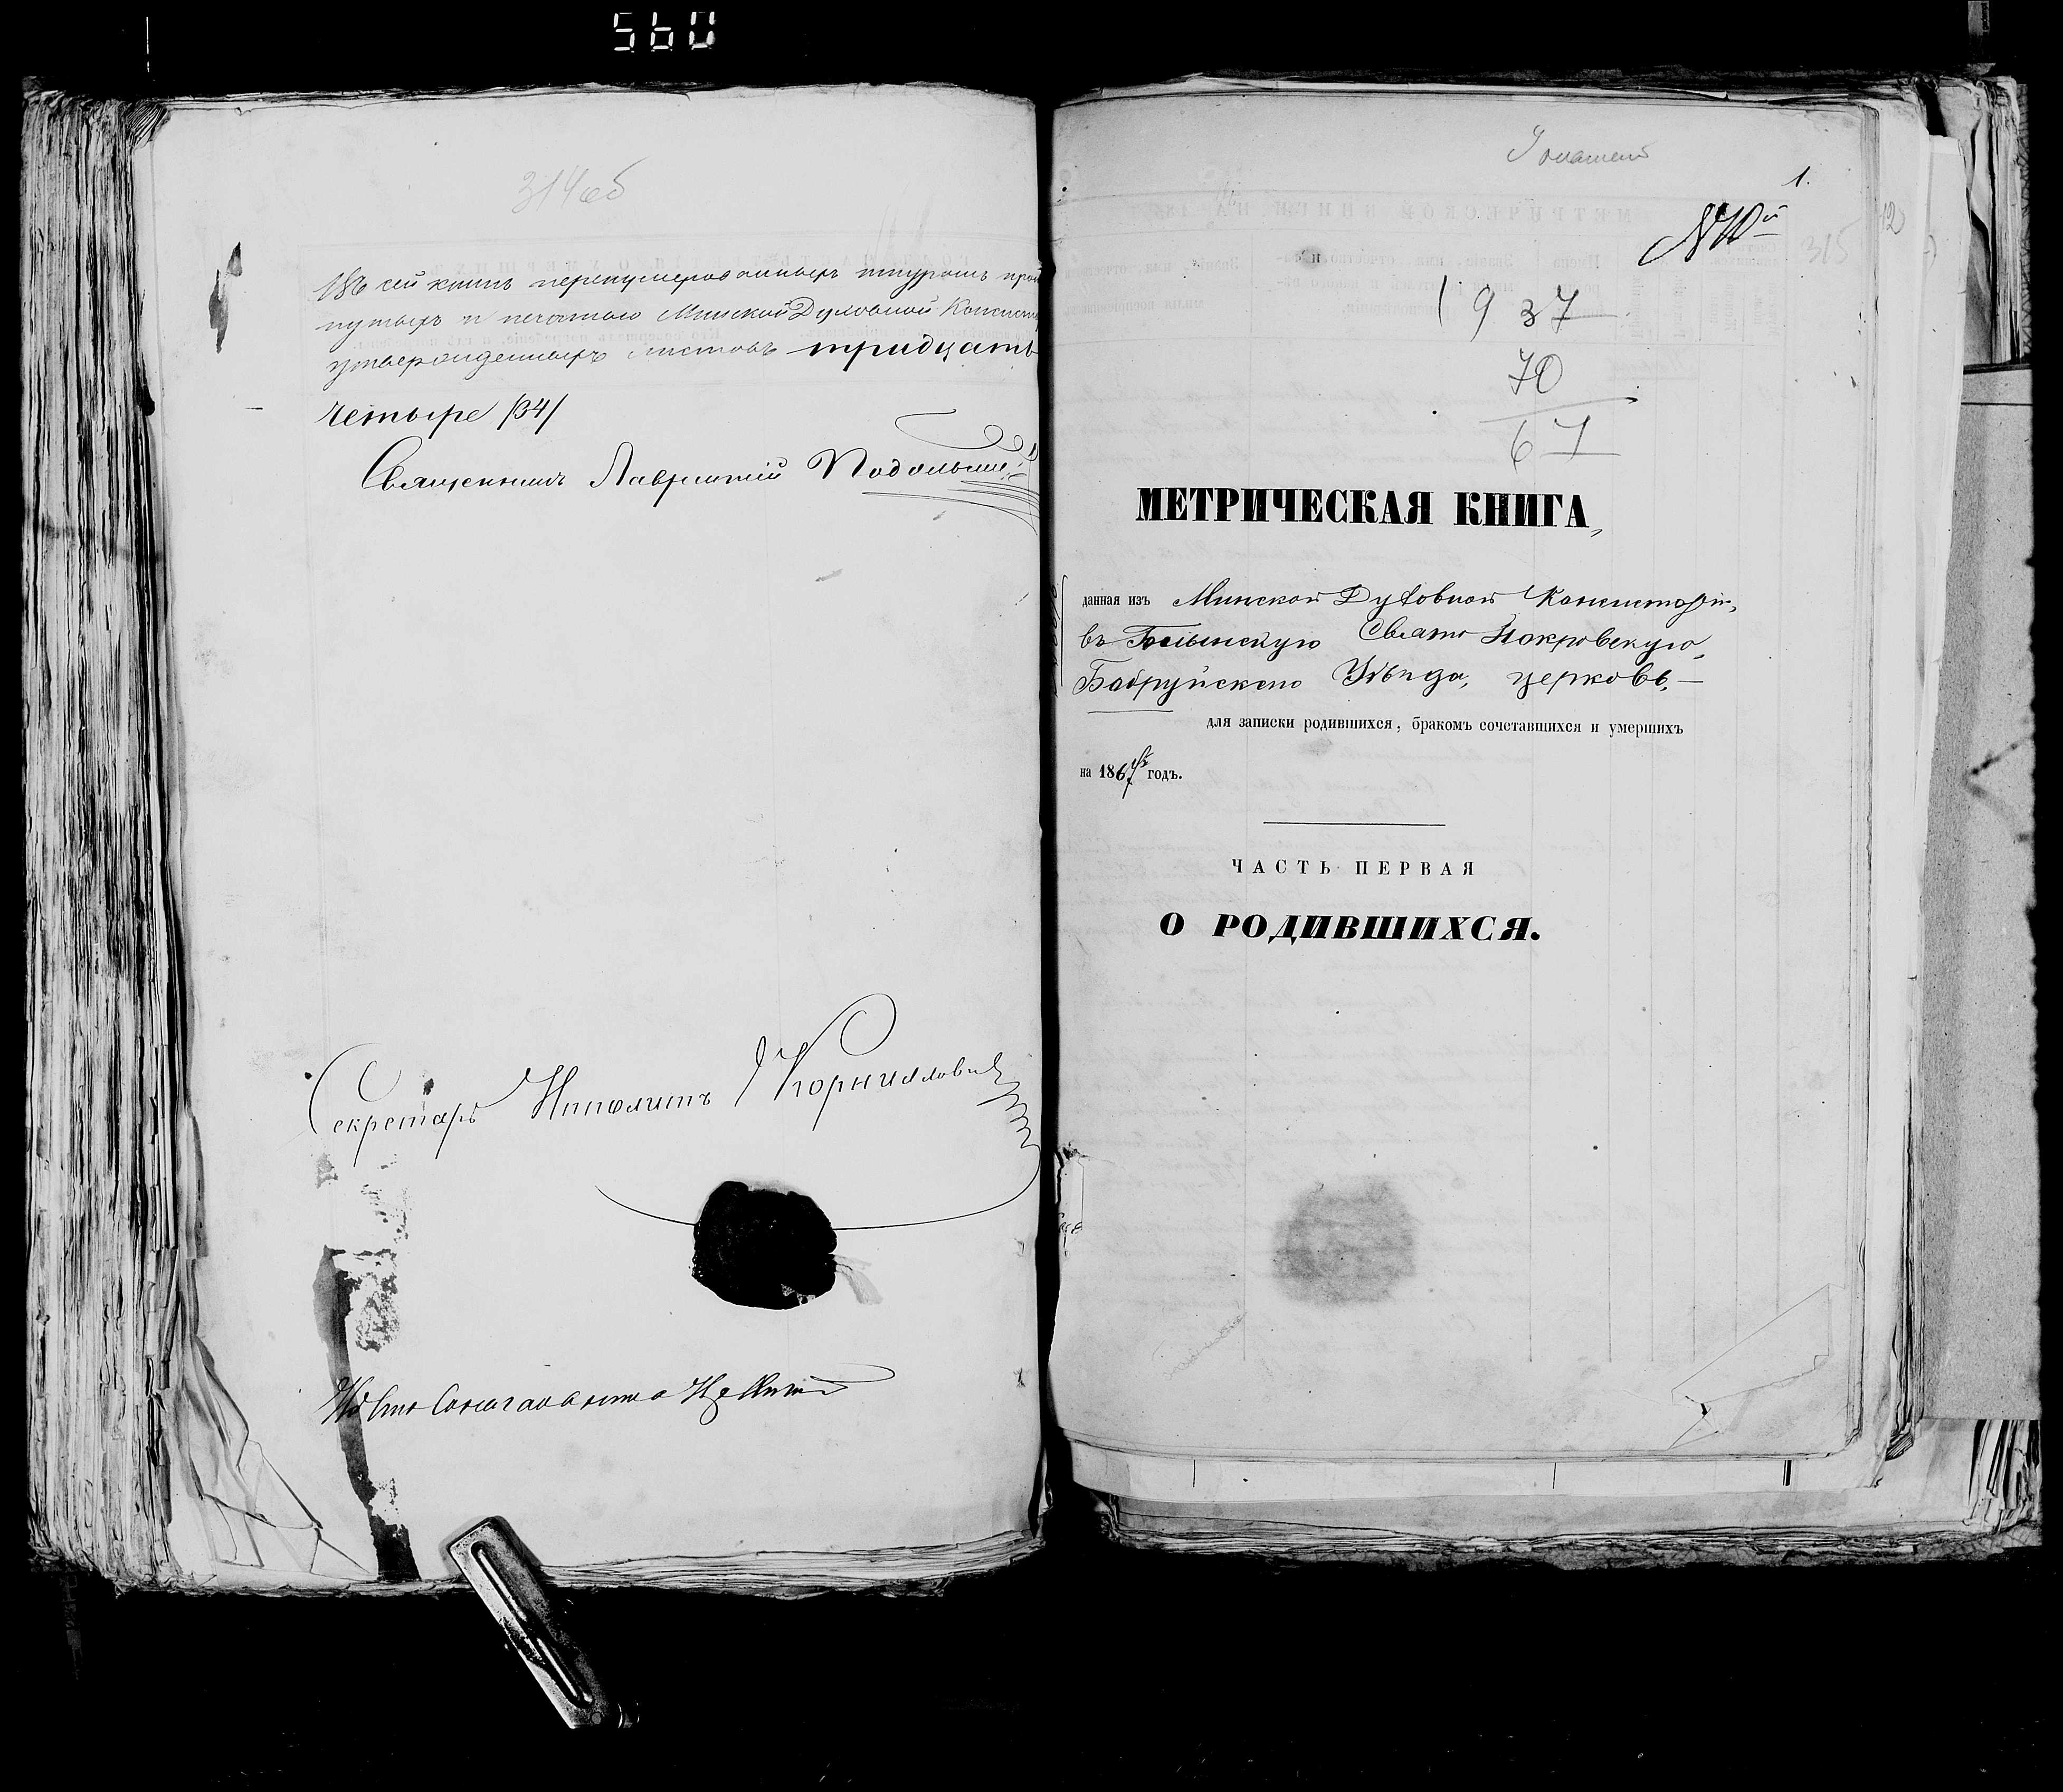 560
314об
Въ сей книгѣ перенумерованныхъ шнуромъ про
нутыхъ и печатью Минской Духовной Консист
утвержденныхъ листовъ тридцать
четыре /34/
Священникъ Лаврентій
Секретарь Ипполитъ Корниловичъ
1.
315
1937
70
67
МЕТРИЧЕСКАЯ КНИГА,
данная изъ Минской Духовной Консисторіи,
въ Свято Покровскую,
Бабруйскаго Уѣзда, церковь,—
для записки родившихся, бракомъ сочетавшихся и умершихъ
на 1867й годъ.
ЧАСТЬ ПЕРВАЯ
О РОДИВШИХСЯ.